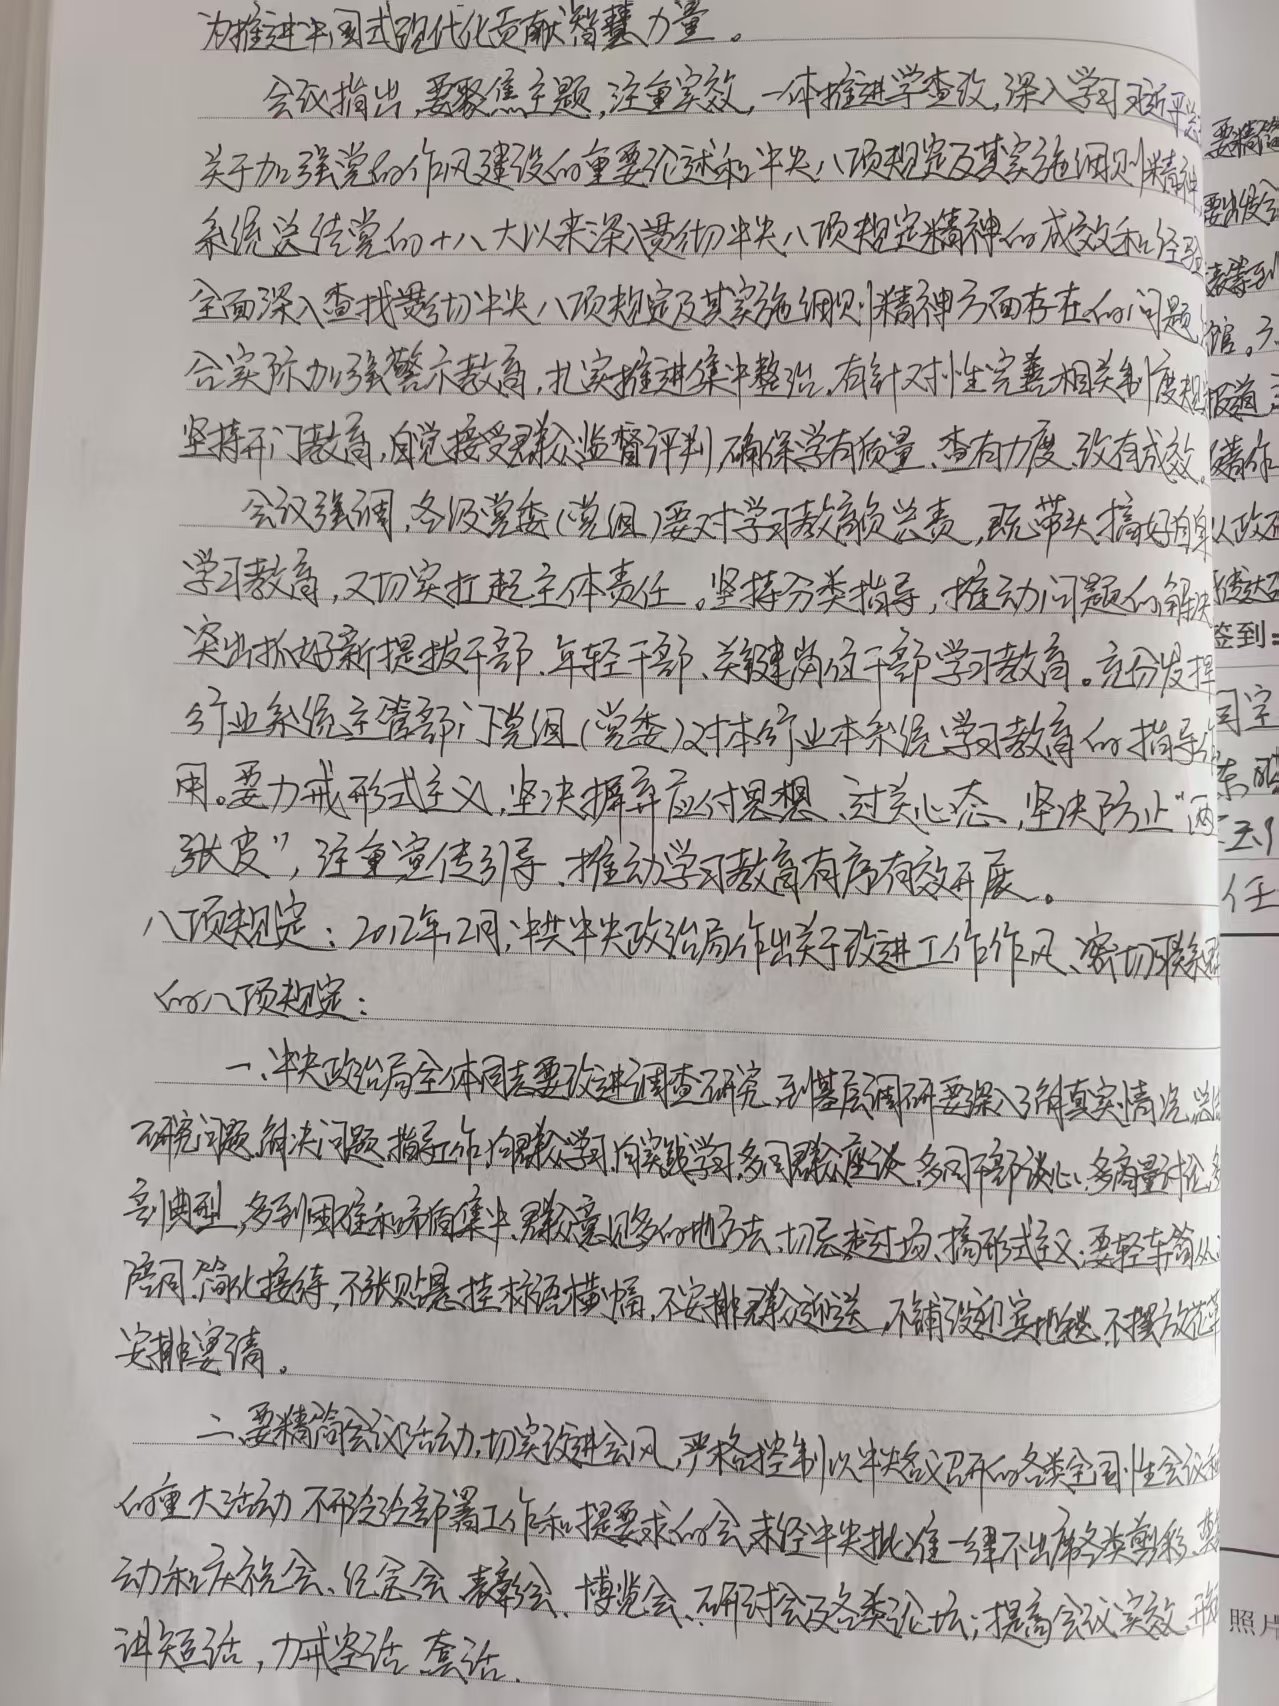 为推进中国式现代化贡献智慧力量。
会议指出,要聚焦主题,注重实效,一体推进学查改,深入学习习近平总
关于加强党的作风建设的重要论述和中央八项规定及其实施细则精神,
系统总结党的十八大以来深入贯彻中央八项规定精神的成效和经验
全面深入查找贯彻中央八项规定及其实施细则精神方面存在的问题,
合实际加强警示教育,扎实推进集中整治,有针对性完善相关制度规
坚持开门教育,自觉接受群众监督评判,确保学有质量、查有力度、改有成效。
会议强调,各级党委(党组)要对学习教育负总责,既带头搞好自身
学习教育,又切实扛起主体责任。坚持分类指导,推动问题的解决
突出抓好新提拔干部、年轻干部、关键岗位干部学习教育。充分发挥
行业系统主管部门党组(党委)对本行业本系统学习教育的指导作
用。要力戒形式主义,坚决摒弃应付思想、过关心态,坚决防止“两
张皮”,注重宣传引导、推动学习教育有序有效开展。
八项规定:2012年12月,中共中央政治局作出关于改进工作作风、密切联系群
的八项规定:
一、中央政治局全体同志要改进调查研究,到基层调研要深入了解真实情况,总结
研究问题、解决问题、指导工作,向群众学习、向实践学习,多同群众座谈,多同干部谈心,多商量讨论,多
剖典型,多到困难和矛盾集中、群众意见多的地方去,切忌走过场、搞形式主义;要轻车简从、
陪同、简化接待,不张贴悬挂标语横幅,不安排群众迎送,不铺设迎宾地毯,不摆放花草
安排宴请。
二、要精简会议活动,切实改进会风,严格控制以中央名义召开的各类全国性会议和
的重大活动,不开泛泛部署工作和提要求的会,未经中央批准一律不出席各类剪彩、奠
动和庆祝会、纪念会、表彰会、博览会、研讨会及各类论坛;提高会议实效,开短
讲短话,力戒空话、套话.
要精简
签到:
同志
任
照片